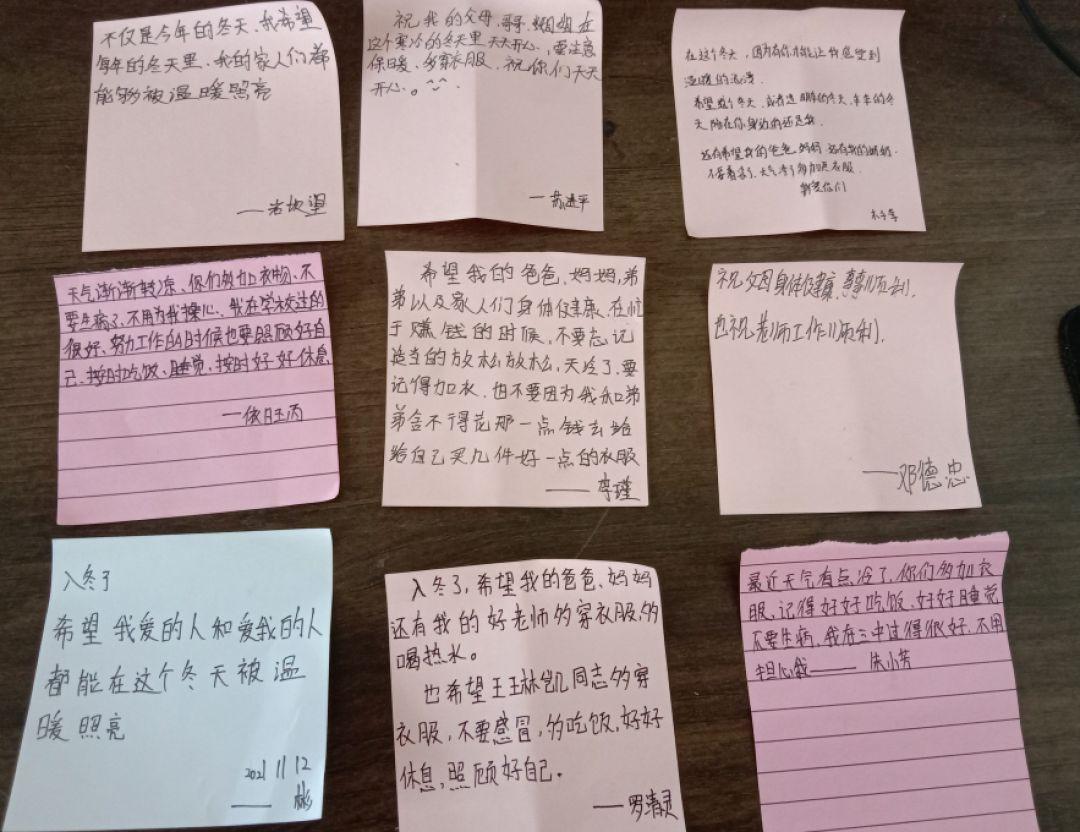 不仅是今年的冬天、我希望
每年的冬天里、我的家人们都
能够被温暖照亮
祝我的父母、哥哥、姐姐在
这个寒冷的冬天里天天开心、要注意
保暖、多穿衣服、祝你们天天
开心。^_^.
在这个冬天,因为有你才能让我感觉到
温暖的
天陪在你身边的还是我.
还有希望我的爸爸.妈妈.还有我的奶奶.
天气冷了多加点衣服.
我爱你们
天气渐渐转凉、你们多加衣物、不
要生病了、不用为我操心、我在学校过的
很好、努力工作的时候也要照顾好自
己、按时吃饭、睡觉、按时好好休息
—依旺丙
希望我的爸爸、妈妈,弟
弟以及家人们身体健康、在忙
于赚钱的时候,不要忘记
适当的放松放松,天冷了、要
记得加衣、也不要因为我和弟
弟舍不得花那一点钱去给
给自己买几件好一点的衣服
——李瑾
祝父母身体健康、事事顺利,
也祝老师工作顺利,
——邓德忠
入冬了
希望我爱的人和爱我的人
都能在这个冬天被温
暖照亮
2021 11 12
—— 彬
入冬了,希望我的爸爸、妈妈
还有我的好老师多穿衣服,多
喝热水。
也希望王王林凯同志多穿
衣服,不要感冒,多吃饭,好好
休息,照顾好自己.
——罗清灵
最近天气有点冷了,你们多加衣
服、记得好好吃饭、好好睡觉
不要生病、我在三中过得很好、不用
担心我——朱小芳